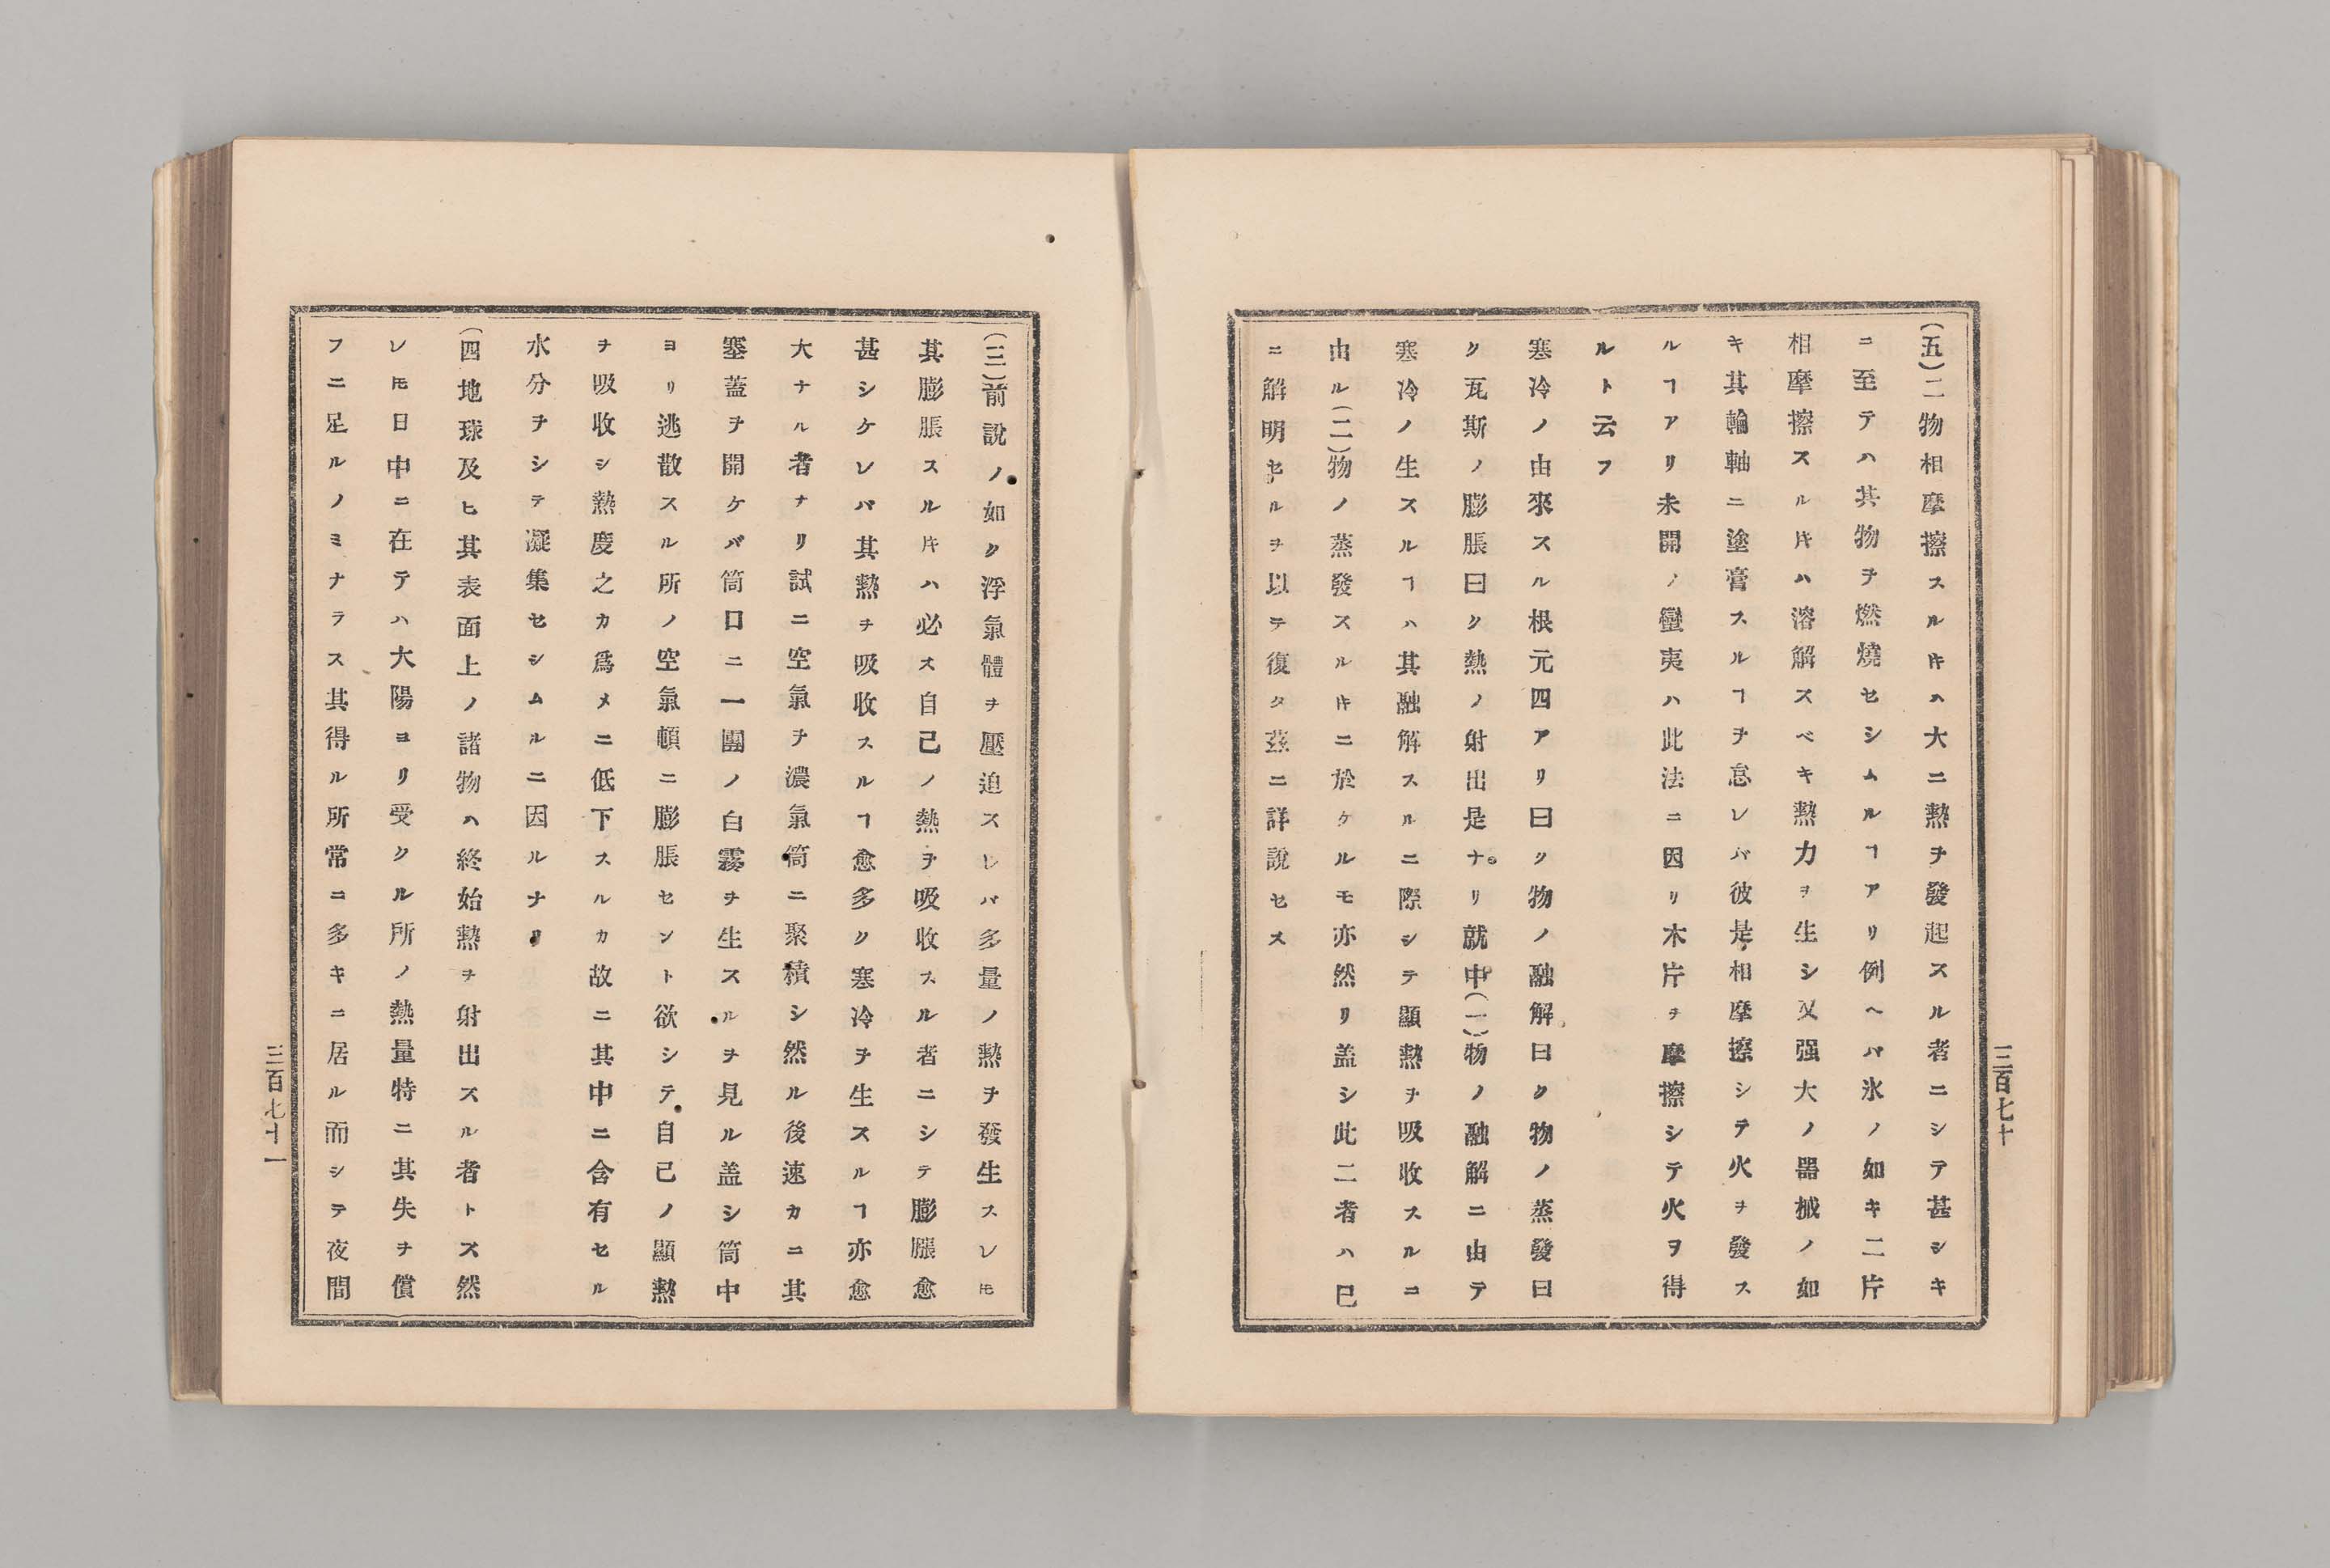 (五)二物相摩擦スルㇳキハ大ニ熱ヲ發起スル者ニシテ甚シキ
ニ至テハ其物ヲ燃燒セシムルヿアリ例ヘバ氷ノ如キ二片
相摩擦スルㇳキハ溶解スベキ熱力ヲ生シ又强大ノ器械ノ如
キ其輪軸ニ塗膏スルヿヲ怠レバ彼是相摩擦シテ火ヲ發ス
ルヿアリ未開ノ蠻夷ハ此法ニ因リ木片ヲ摩擦シテ火ヲ得
ルト云フ
寒冷ノ由來スル根元四アリ曰ク物ノ融解曰ク物ノ蒸發曰
ク瓦斯ノ膨脹曰ク熱ノ射出是ナリ就中(一)物ノ融解ニ由テ
寒冷ノ生スルヿハ其融解スルニ際シテ顯熱ヲ吸收スルニ
由ル(二)物ノ蒸發スルㇳキニ於ケルモ亦然リ盖シ此二者ハ巳
ニ解明セルヲ以テ復タ茲ニ詳說セス
三百七十
(三)前說ノ如ク浮氣體ヲ壓迫スレバ多量ノ熱ヲ發生スレㇳモ
其膨脹スルㇳキハ必ス自己ノ熱ヲ吸收スル者ニシテ膨脹愈
甚シケレバ其熱ヲ吸收スルヿ愈多ク寒冷ヲ生スルヿ亦愈
大ナル者ナリ試ニ空氣ヲ濃氣筒ニ聚積シ然ル後速カニ其
塞蓋ヲ開ケバ筒口ニ一團ノ白霧ヲ生スルヲ見ル盖シ筒中
ヨリ逃散スル所ノ空氣頓ニ膨脹セント欲シテ自己ノ顯熱
ヲ吸收シ熱度之カ爲メニ低下スルカ故ニ其中ニ含有セル
水分ヲシテ凝集セシムルニ因ルナリ
(四地球及ヒ其表面上ノ諸物ハ終始熱ヲ射出スル者トス然
レㇳモ日中ニ在テハ大陽ヨリ受クル所ノ熱量特ニ其失ヲ償
フニ足ルノミナラス其得ル所常ニ多キニ居ル而シテ夜間
三百七十一